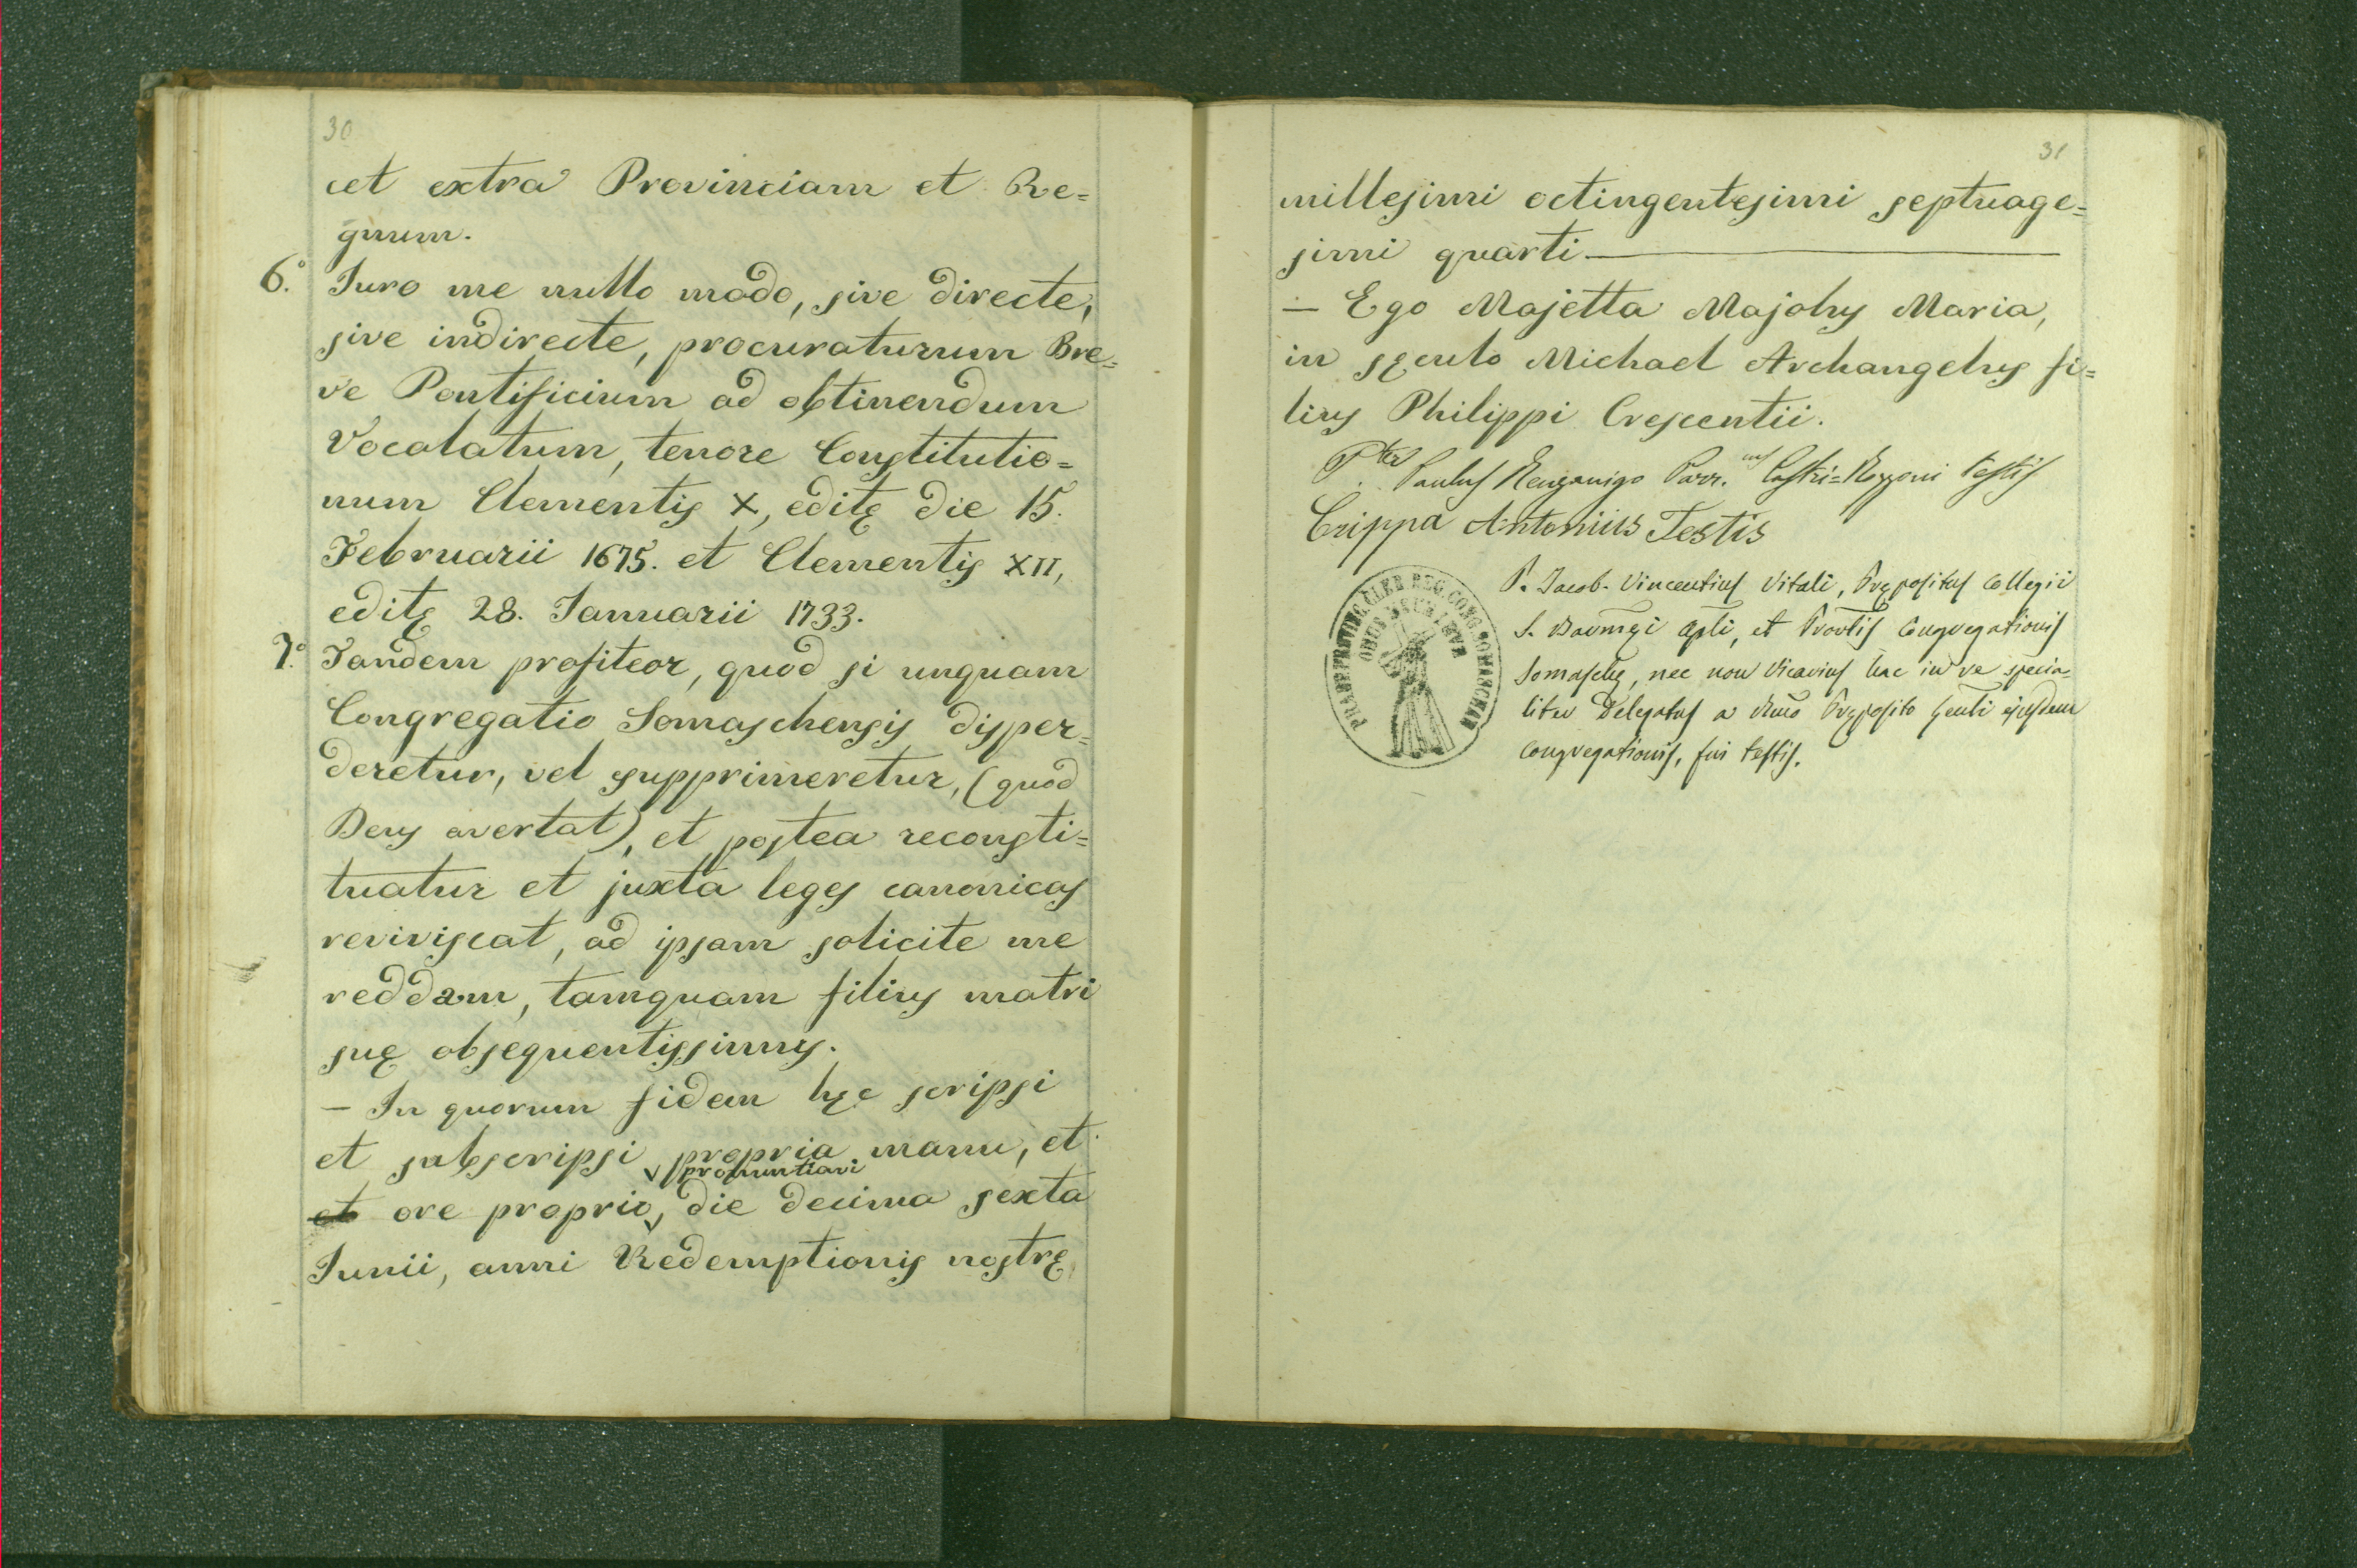 30
cet extra Provinciam et Re=
gnum.
6.° Juro me nullo modo, sive directe,
sive indirecte, procuraturum Bre=
ve Pontificium ad obtinendum
Vocalatum, tenore Constitutio=
num Clementis X, editę die 15.
Februarii 1675. et Clementis XII,
editę 28. Januarii 1733.
7.° Tandem profiteor, quod si unquam
Congregatio Somaschensis disper=
deretur, vel supprimeretur, (quod
Deus avertat), et postea reconsti=
tuatur et juxta leges canonicas
reviviscat, ad ipsam solicite me
reddam, tamquam filius matri
suę obsequentissimus.
— In quorum fidem hęc scripsi
et subscripsi propria manu, et
pronuntiavi
et ore proprio, die decima sexta
Junii, anni Redemptionis nostrę
31
millesimi octingentesimi septuage=
simi quarti
— Ego Majetta Majolus Maria,
in sęculo Michael Archangelus fi=
lius Philippi Crescentii.
P.ter Paulus Parr.us Castri=Rozzoni testis
Crippa Antonius Testis
P. Jacob. Vincentius Vitali, Prępositus Collegii
S. Barmęi Apli, et Provlis Congregationis
Somaschę, nec non Vicarius hac in re specia=
liter Delegatus a Rmo Pręposito Genli ejusdem
Congregationis, fui testis.
PRAEP. PROVINC. CLER. REG. CONG. SOMASCHAE
ONUS MEUM LEVE